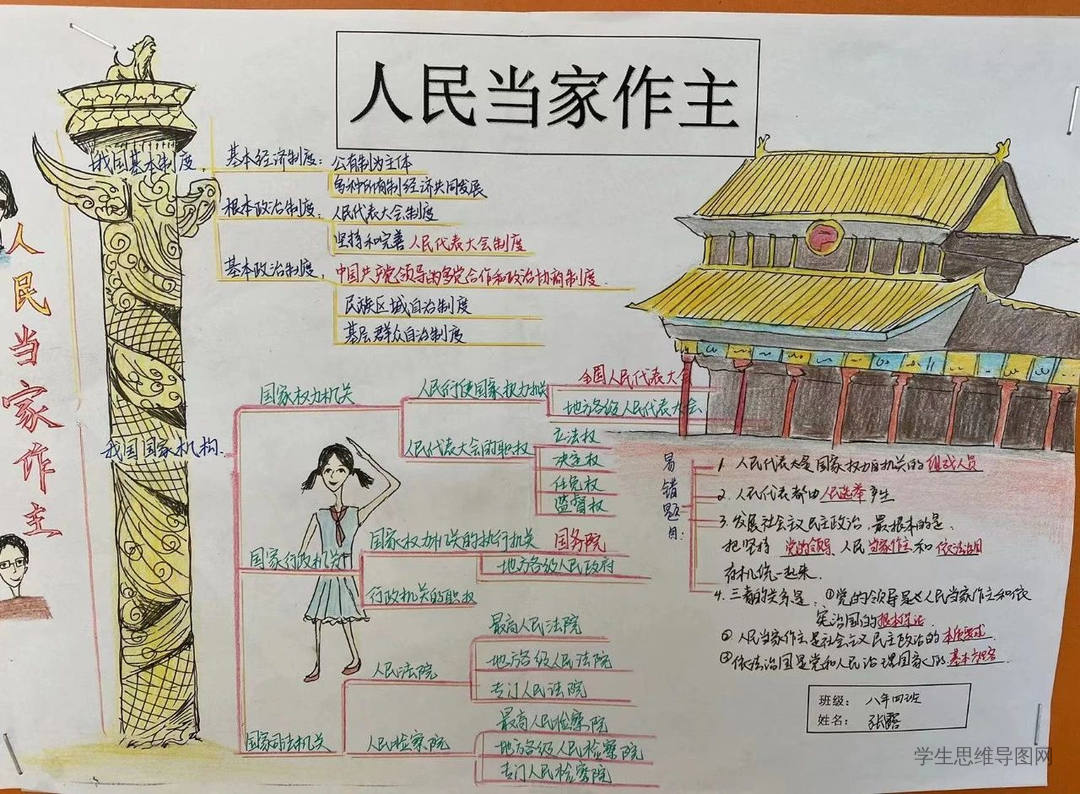 人民当家作主
人民当家作主
我国基本制度
基本经济制度：公有制为主体
多种所有制经济共同发展
根本政治制度：人民代表大会制度
坚持和完善人民代表大会制度
基本政治制度，中国共产党领导的多党合作和政治协商制度.
民族区域自治制度
基层群众自治制度
我国国家机构.
国家权力机关
人民行使国家权力机关
全国人民代表大
地方各级人民代表大会
人民代表大会的职权
立法权
决定权
任免权
监督权
国家行政机关
国家权力机关的执行机关 国务院
地方各级人民政府
行政机关的职权
国家司法机关
人民法院
最高人民法院
地方各级人民法院
专门人民法院
人民检察院
最高人民检察院
地方各级人民检察院
专门人民检察院
易错题目:
1. 人民代表大是国家权力机关的组成人员
2. 人民代表都由人民选举产生
3. 发展社会主义民主政治，最根本的是、
把坚持 党的领导 人民当家作主和依法治国
有机统一起来.
4. 三者的关系是，①党的领导是人民当家作主和依
宪治国的根本保证.
② 人民当家作主是社会主义民主政治的本质要求.
③依法治国是党和人民治理国家的基本方略.
班级：八年四班
姓名：
学生思维导图网